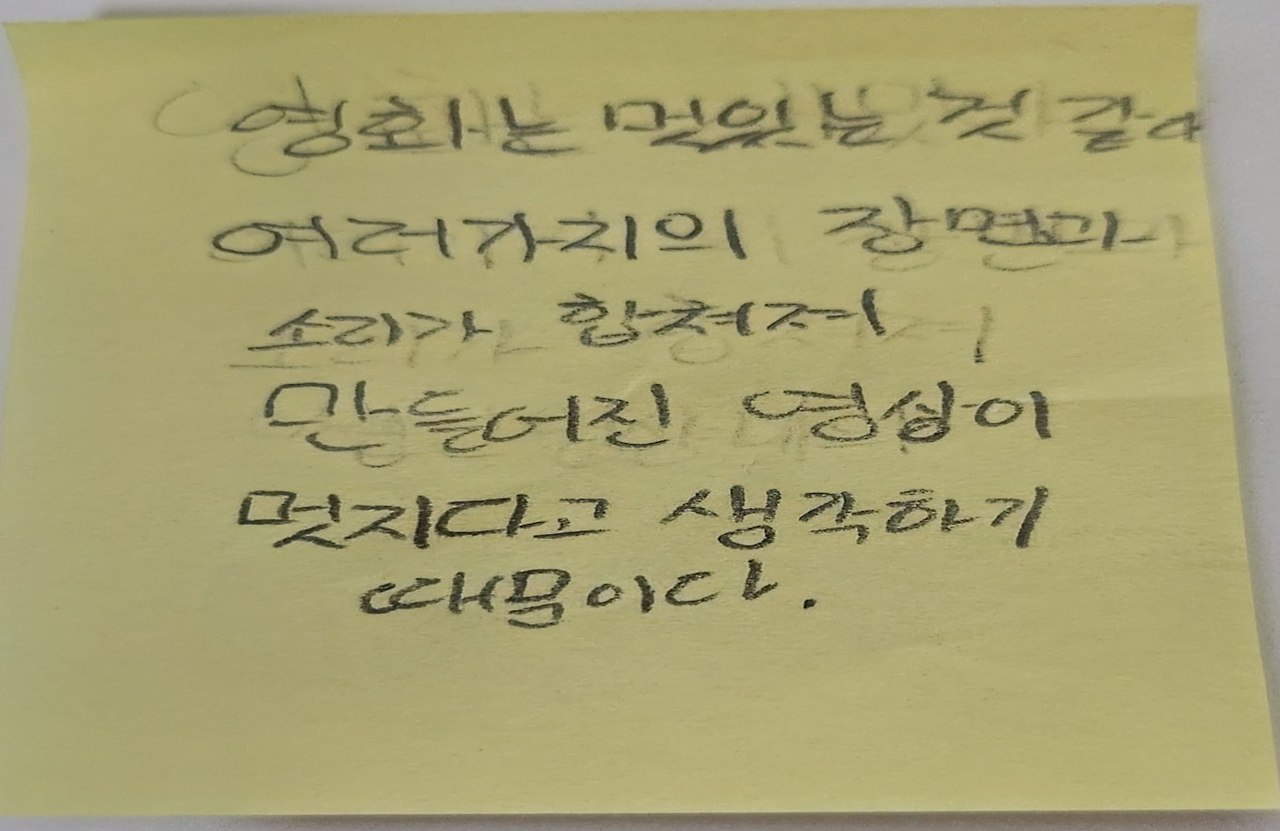 영화는 멋있는 것 같아
여러가지의 장면과
소리가 합쳐저
만들어진 영상이
멋지다고 생각하기
때문이다.